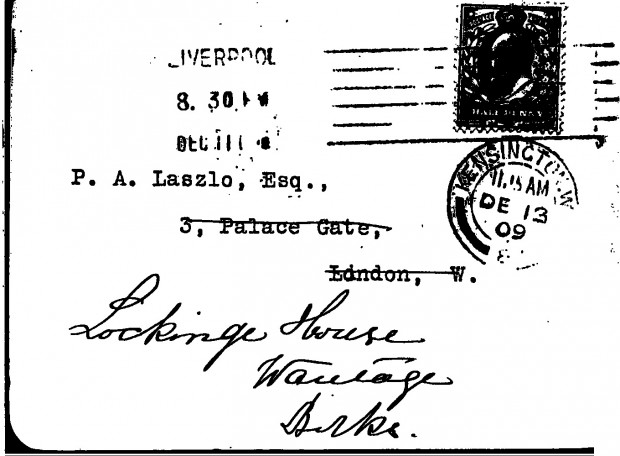 LIVERPOOL
8. 30 PM
DEC 11
HALFPENNY
KENSINGTON.W
11.15 AM
DE 13
09
P. A. Laszlo, Esq.,
3, Palace Gate,
London, W.
Lockinge House
Wantage
Berks.